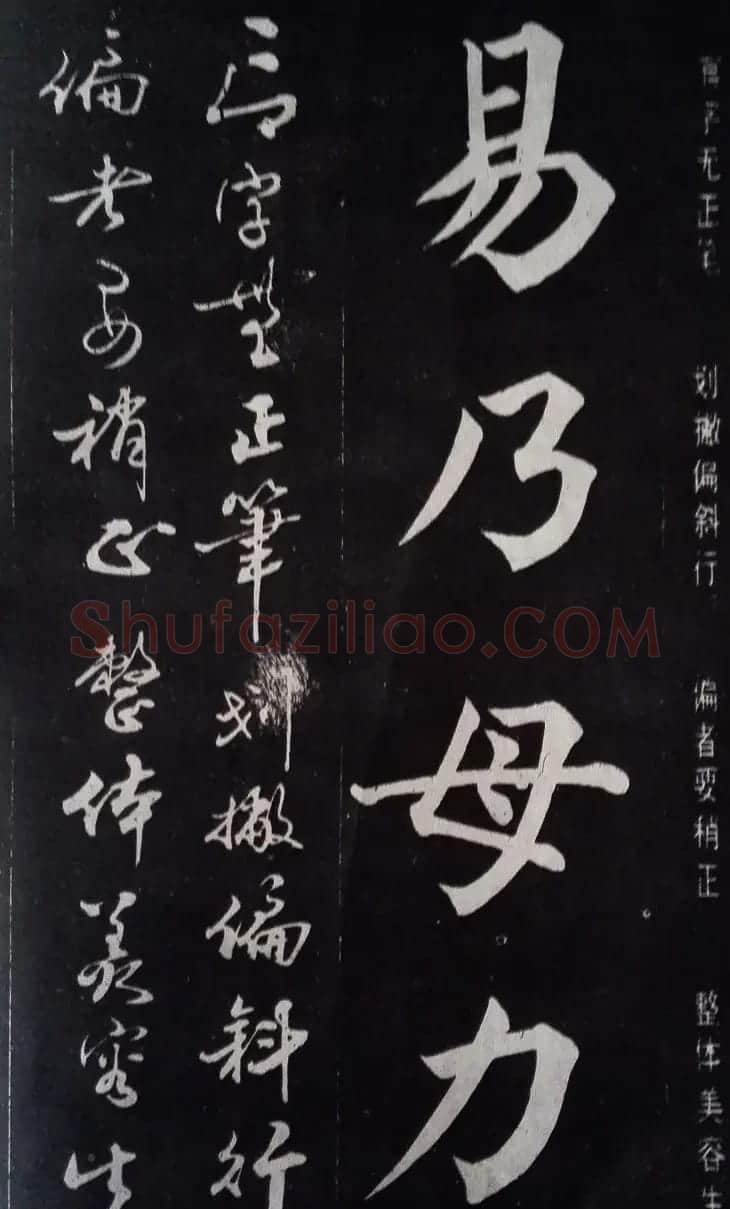 字无正笔 划撇偏斜行 偏者要稍正 整体美容生
易乃母力
字無正筆划撇偏斜行
偏者要稍正整体美容生
Shufaziliao.COM